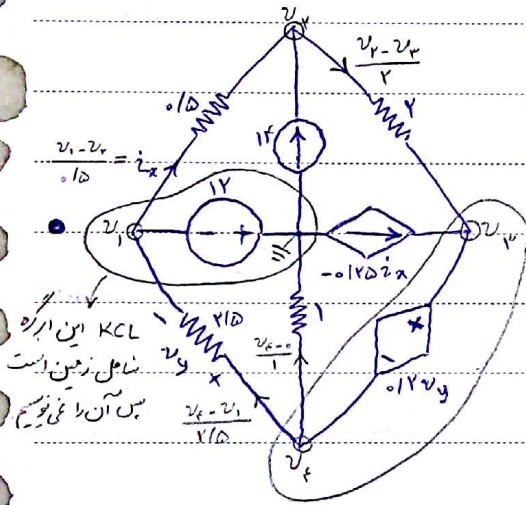 v۲
(v۲ - v۳)/۲
۰/۵
۲
۱۴
(v۱ - v۲)/۰/۵ = ix
۱۲
- +
v۱
v۳
-۰/۲۵ ix
KCL این ابرگره
شامل زمین است
پس آن را نمی‌نویسیم
- ۲/۵
vy +
(v۴ - ۰)/۱
۱
+
-
۰/۲ vy
(v۴ - v۱)/۲/۵
v۴